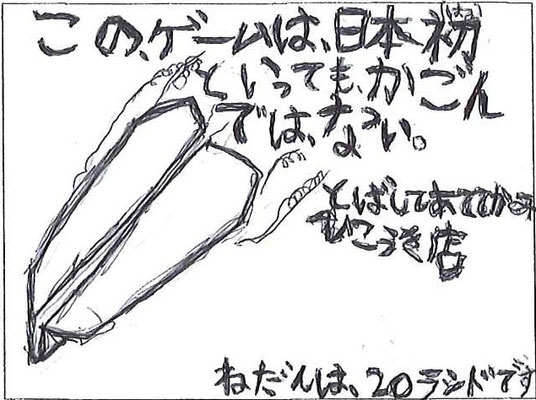 はつ
この、ゲームは、日本初
といっても、かごん
では、ない。
とばしてあててかみ
ひこうき店
ねだんは、20ランドです